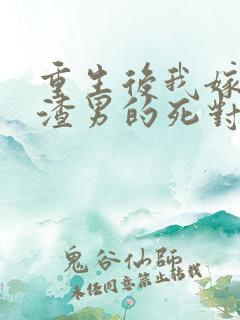 重生後我嫁
渣男的死對
鬼谷仙師
未經同意禁止轉載